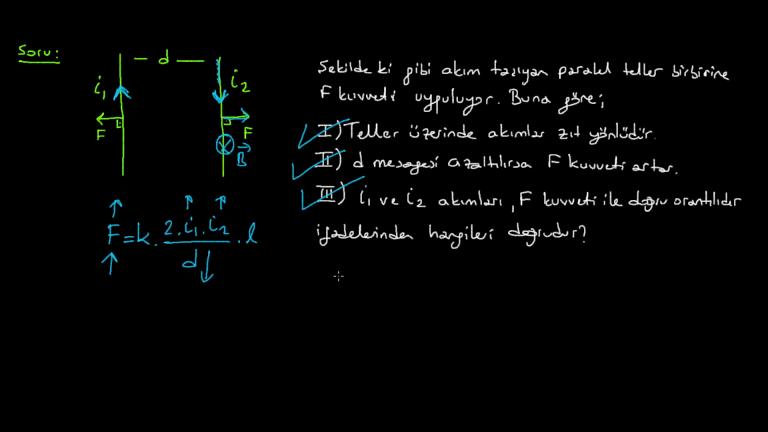 Soru:
d
i₁
i₂
F
F
B
F = k. 2. i₁. i₂ / d . l
Şekildeki gibi akım taşıyan paralel teller birbirine
F kuvveti uyguluyor. Buna göre;
I) Teller üzerinde akımlar zıt yönlüdür.
II) d mesafesi azaltılırsa F kuvveti artar.
III) i₁ ve i₂ akımları, F kuvveti ile doğru orantılıdır
ifadelerinden hangileri doğrudur?